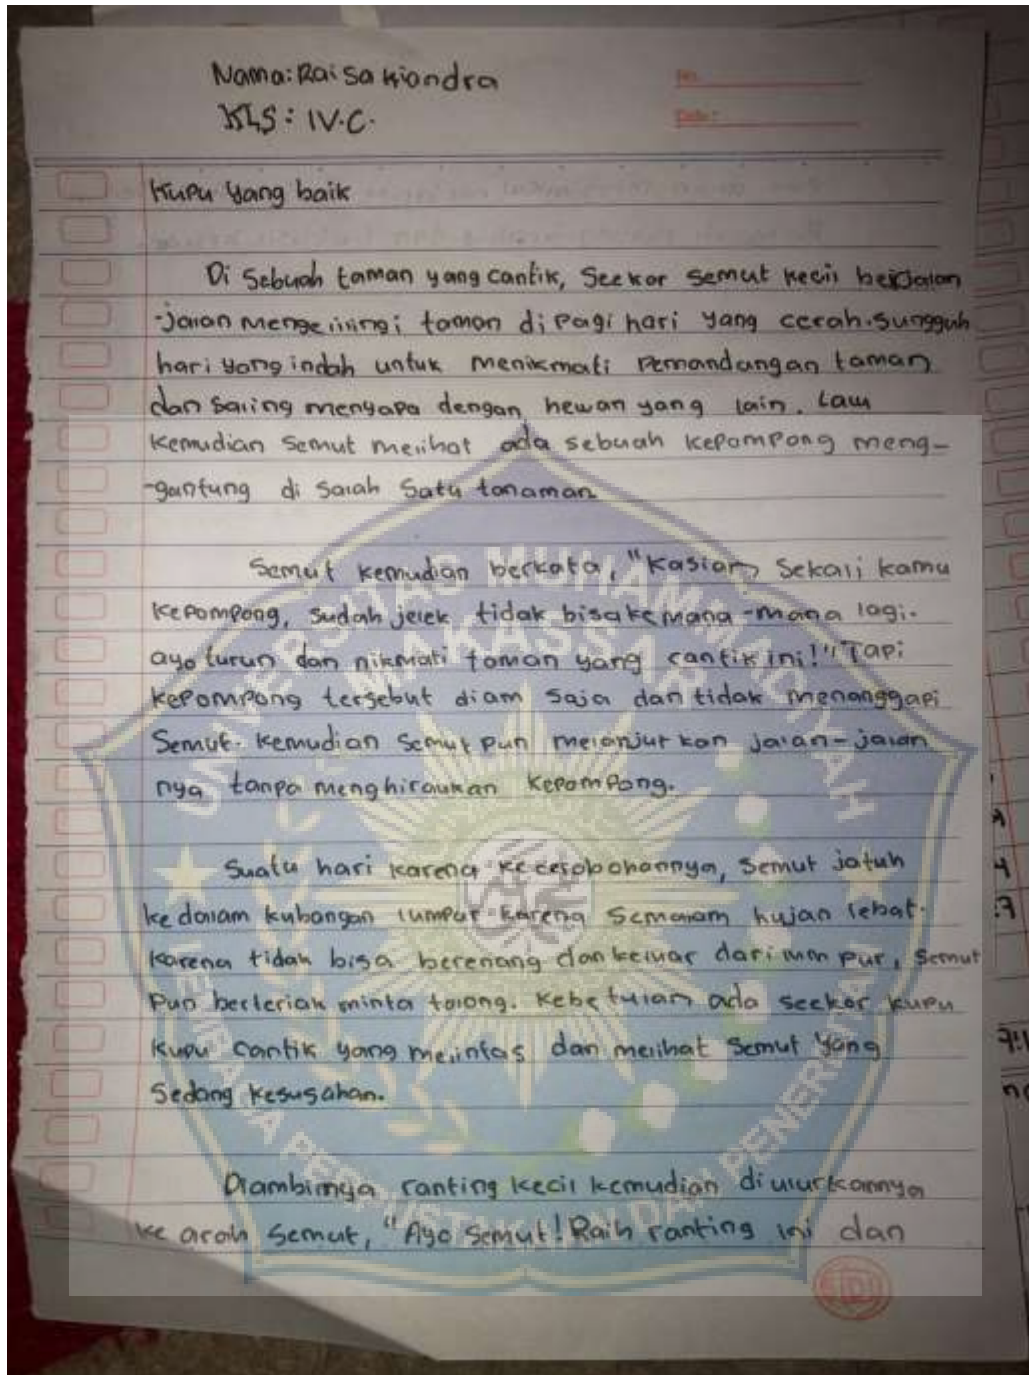 Nama: Raisa Kiandra
KLS : IV.C.
No.
Date :
Kupu yang baik
Di Sebuah taman yang cantik, Seekor semut kecil berjalan
-jalan mengelilingi taman di pagi hari yang cerah. sungguh
hari yang indah untuk menikmati pemandangan taman
dan saling menyapa dengan hewan yang lain. Lalu
kemudian semut melihat ada sebuah kepompong meng-
-gantung di salah satu tanaman
Semut kemudian berkata, "Kasian Sekali kamu
kepompong, sudah jelek tidak bisa kemana-mana lagi.
ayo turun dan nikmati taman yang cantik ini!" Tapi
kepompong tersebut diam saja dan tidak menanggapi
Semut. kemudian semut pun melanjutkan jalan-jalan
nya tanpa menghiraukan kepompong.
Suatu hari karena kecerobohannya, semut jatuh
ke dalam kubangan lumpur karena semalam hujan lebat.
karena tidak bisa berenang dan keluar dari lumpur, semut
pun berteriak minta tolong. kebetulan ada seekor kupu
kupu cantik yang melintas dan melihat semut yang
sedang kesusahan.
Diambilnya ranting kecil kemudian diulurkannya
ke arah semut, "Ayo semut! Raih ranting ini dan
UNIVERSITAS MUHAMMADIYAH
MAKASSAR
LEMBAGA PERPUSTAKAAN DAN PENERBITAN
SIDU